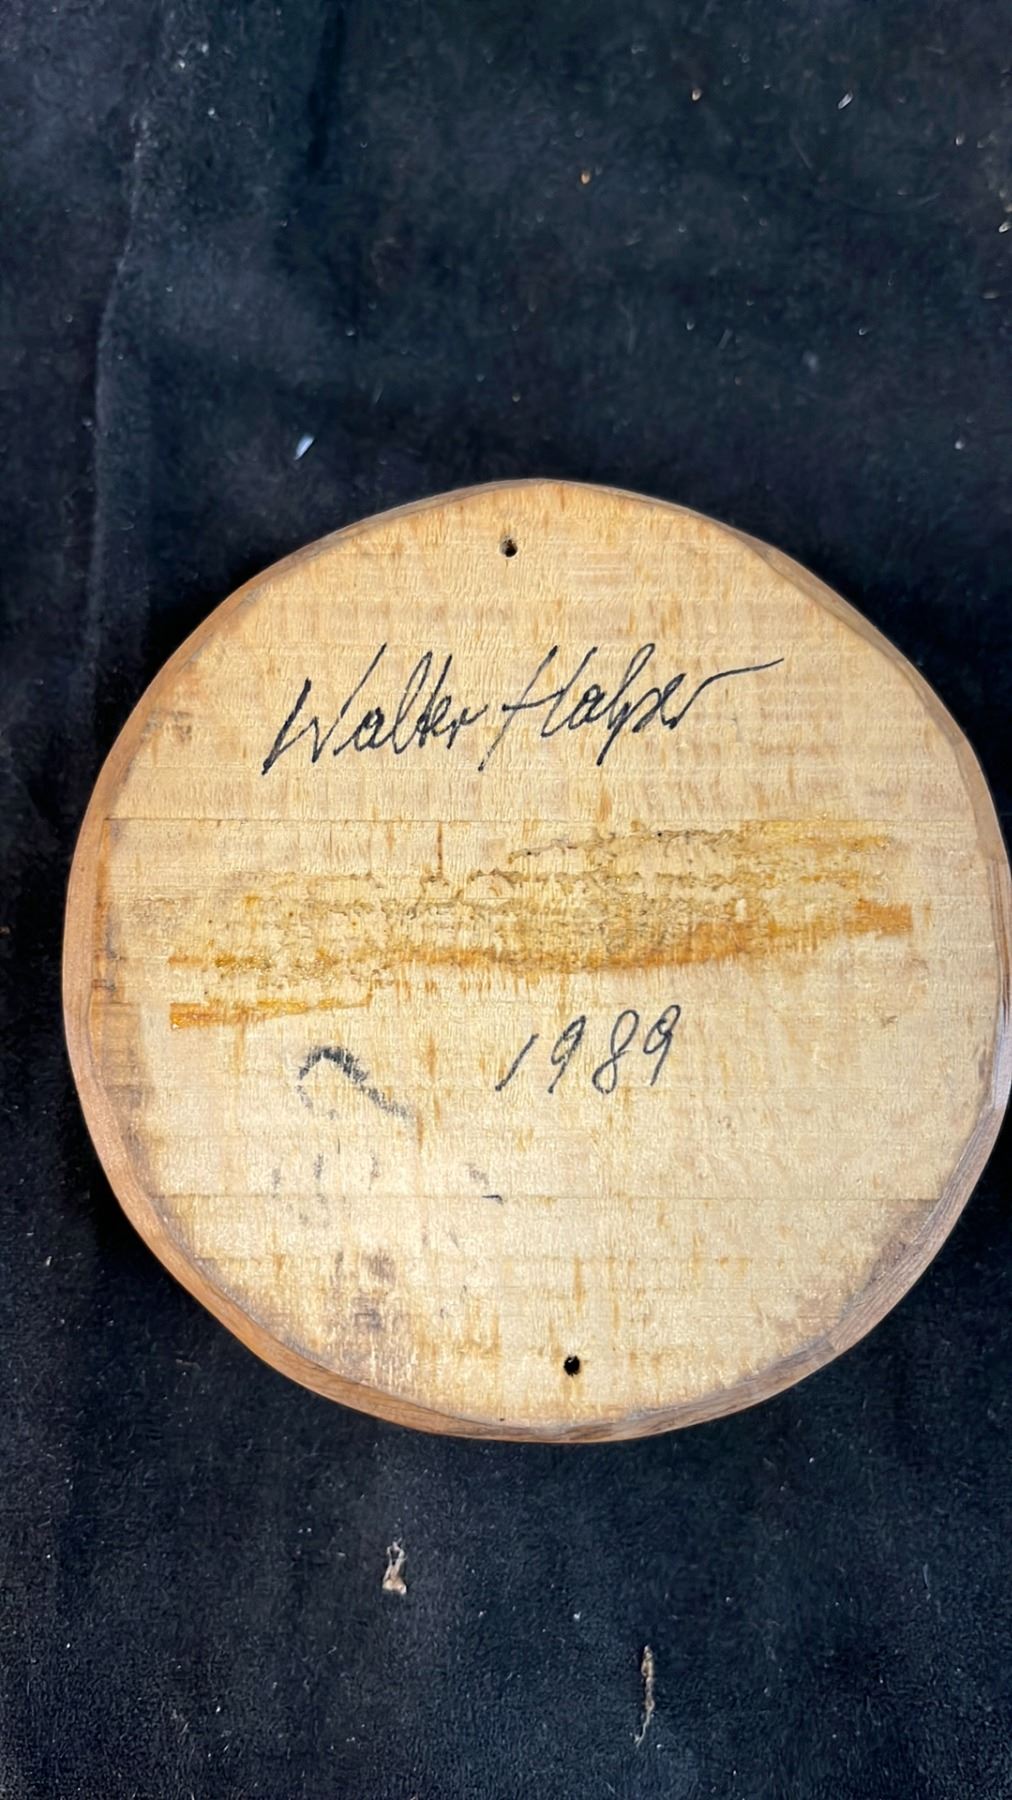 Walter Halper
1989